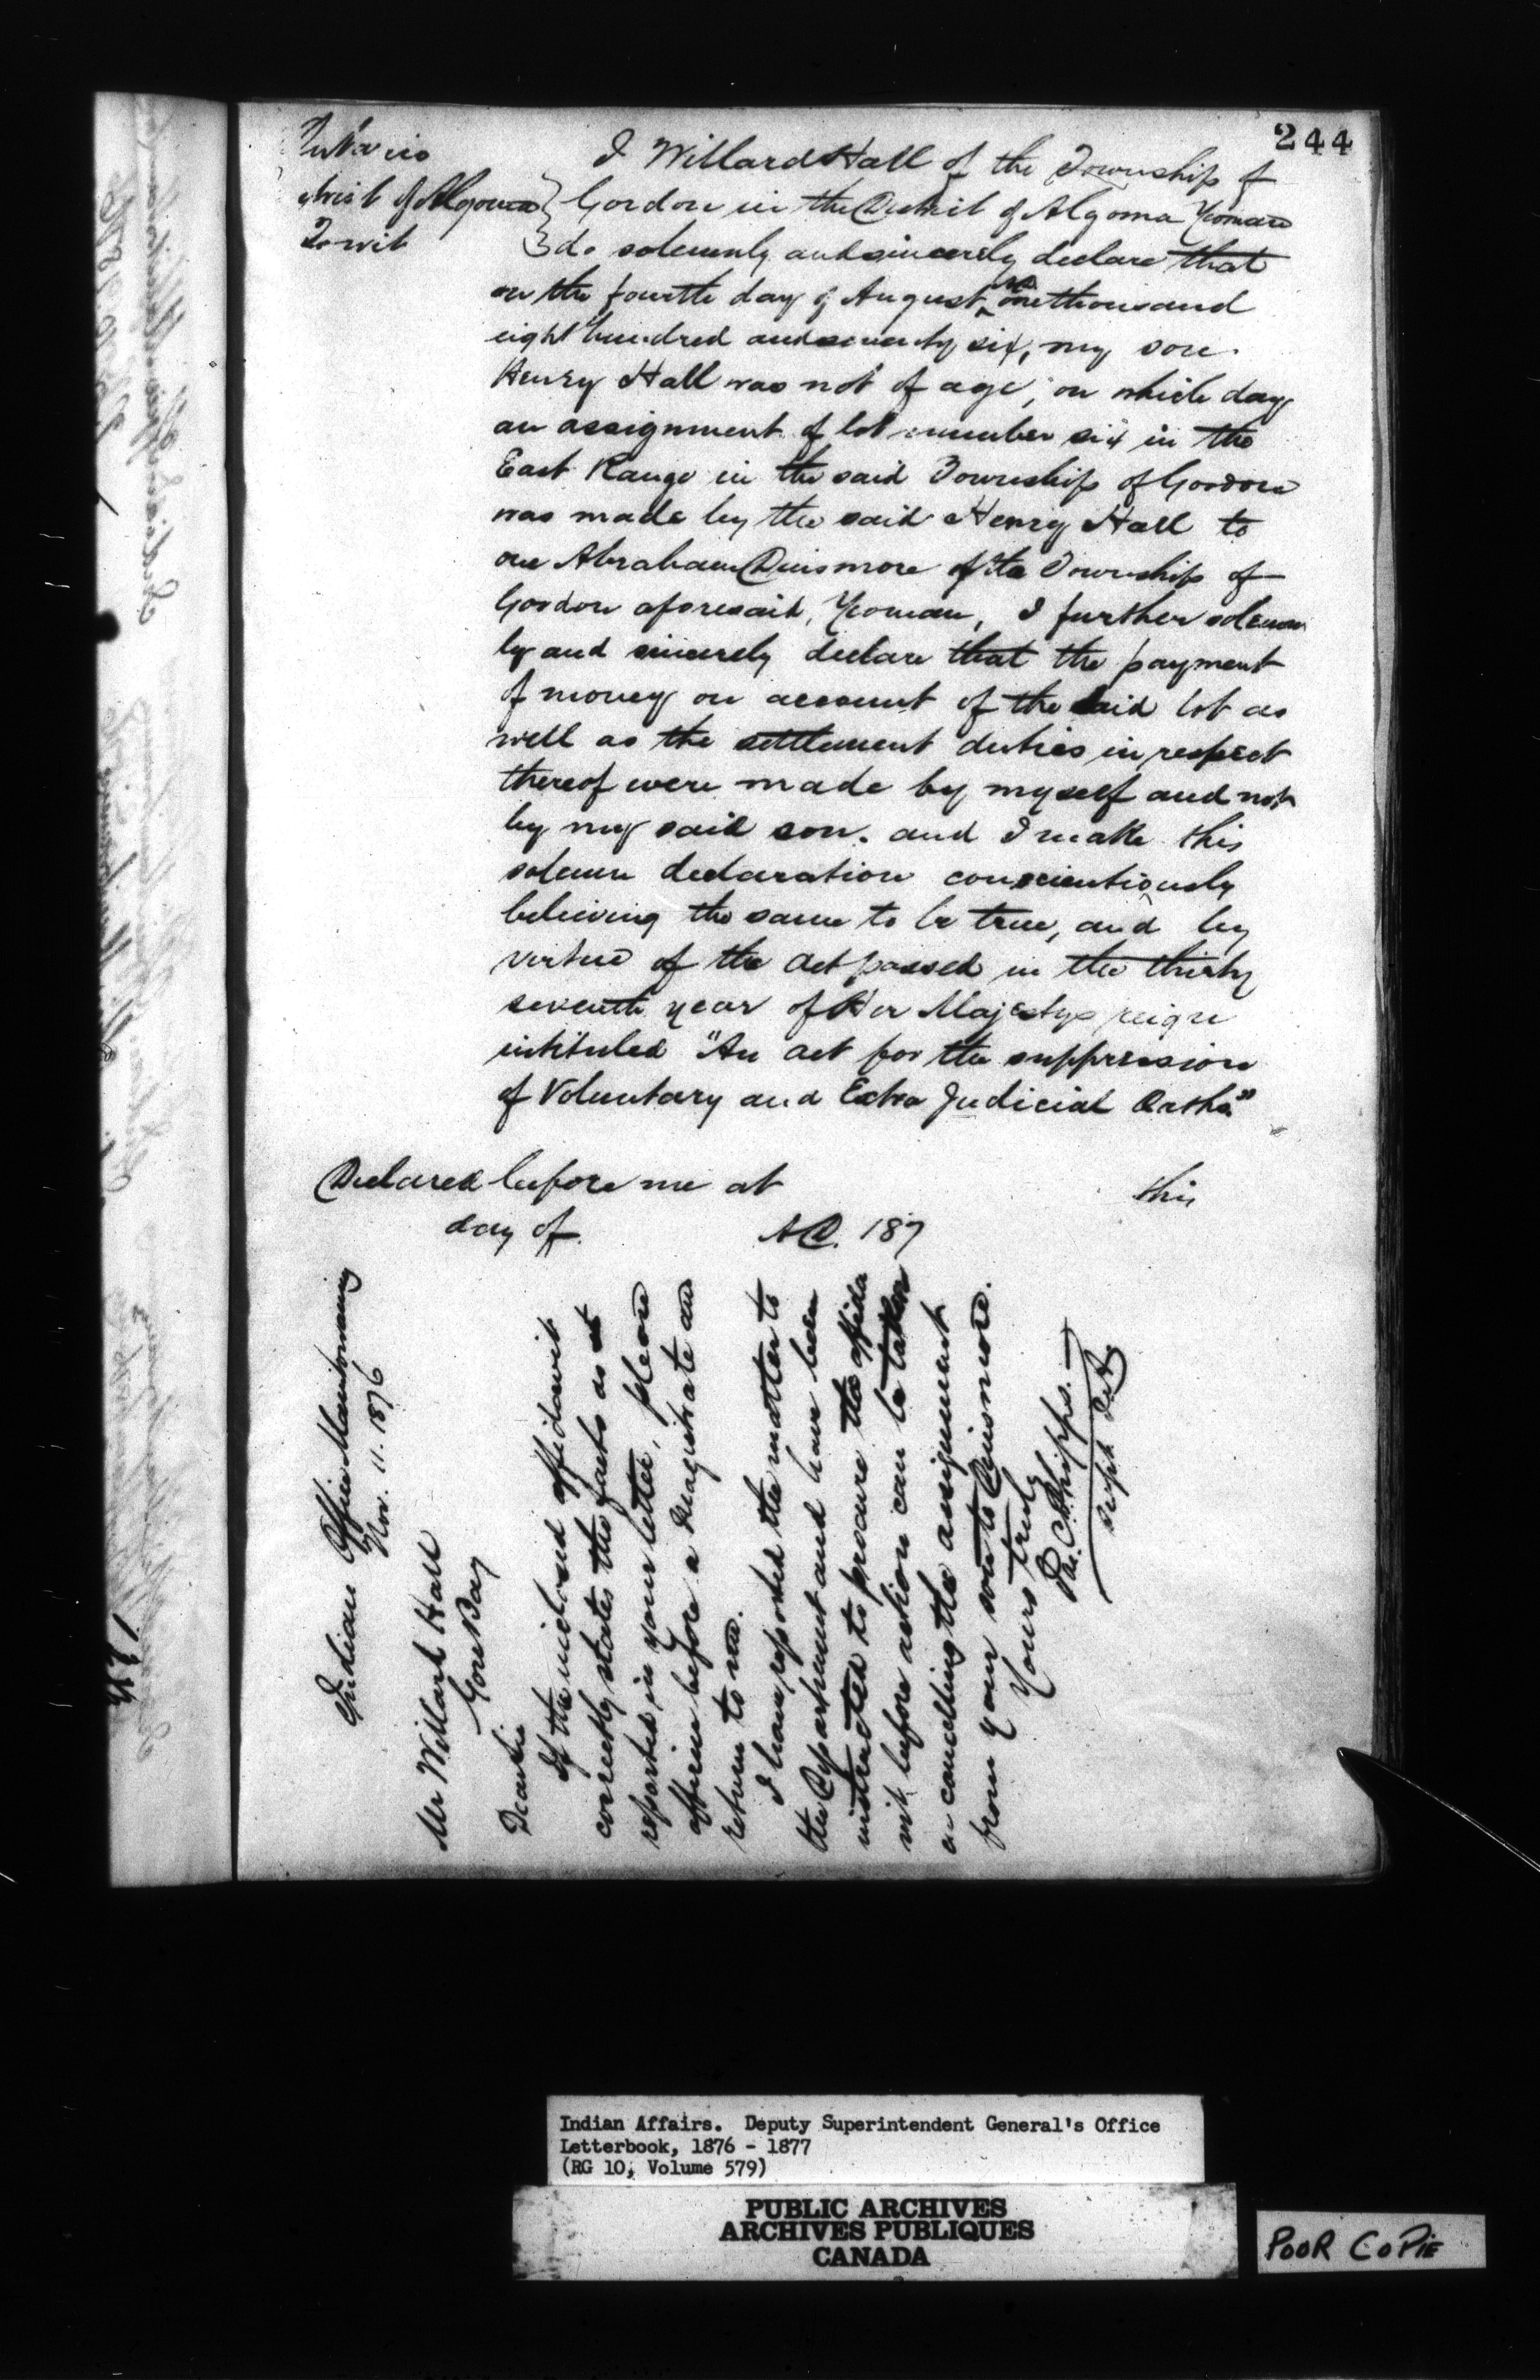 244
Ontario
District of Algoma
To wit
I Willard Hall of the Township of
Gordon in the District of Algoma Yeoman
do solemnly and sincerely declare that
on the fourth day of August, one thousand
eight hundred and seventy six, my son
Henry Hall was not of age, on which day
an assignment of lot number six in the
East Range in the said Township of Gordon
was made by the said Henry Hall to
one Abraham Dinsmore of the Township of
Gordon aforesaid, Yeoman, I further solemn
ly and sincerely declare that the payment
of money on account of the said lot as
well as the settlement duties in respect
thereof were made by myself and not
by my said son. and I make this
solemn declaration conscientiously
believing the same to be true, and by
virtue of the act passed in the thirty
seventh year of Her Majestys reign
intituled "An act for the suppression
of Voluntary and Extra Judicial Oaths"
Declared before me at this
day of A.D. 187
Indian Office Manitowaning
Nov. 11. 1876
Mr Willard Hall
Gore Bay
Dear Sir
If the inclosed affidavit
correctly states the facts as
reported in your letter, please
affirm before a Magistrate and
return to me.
I have reported the matter to
the Department and have been
instructed to procure the affida
vit before action can be taken
in cancelling the assignment
from your son to Dinsmore.
Yours truly
J. C. Phipps.
Supt
Indian Affairs. Deputy Superintendent General's Office
Letterbook, 1876 - 1877
(RG 10, Volume 579)
PUBLIC ARCHIVES
ARCHIVES PUBLIQUES
CANADA
POOR COPIE